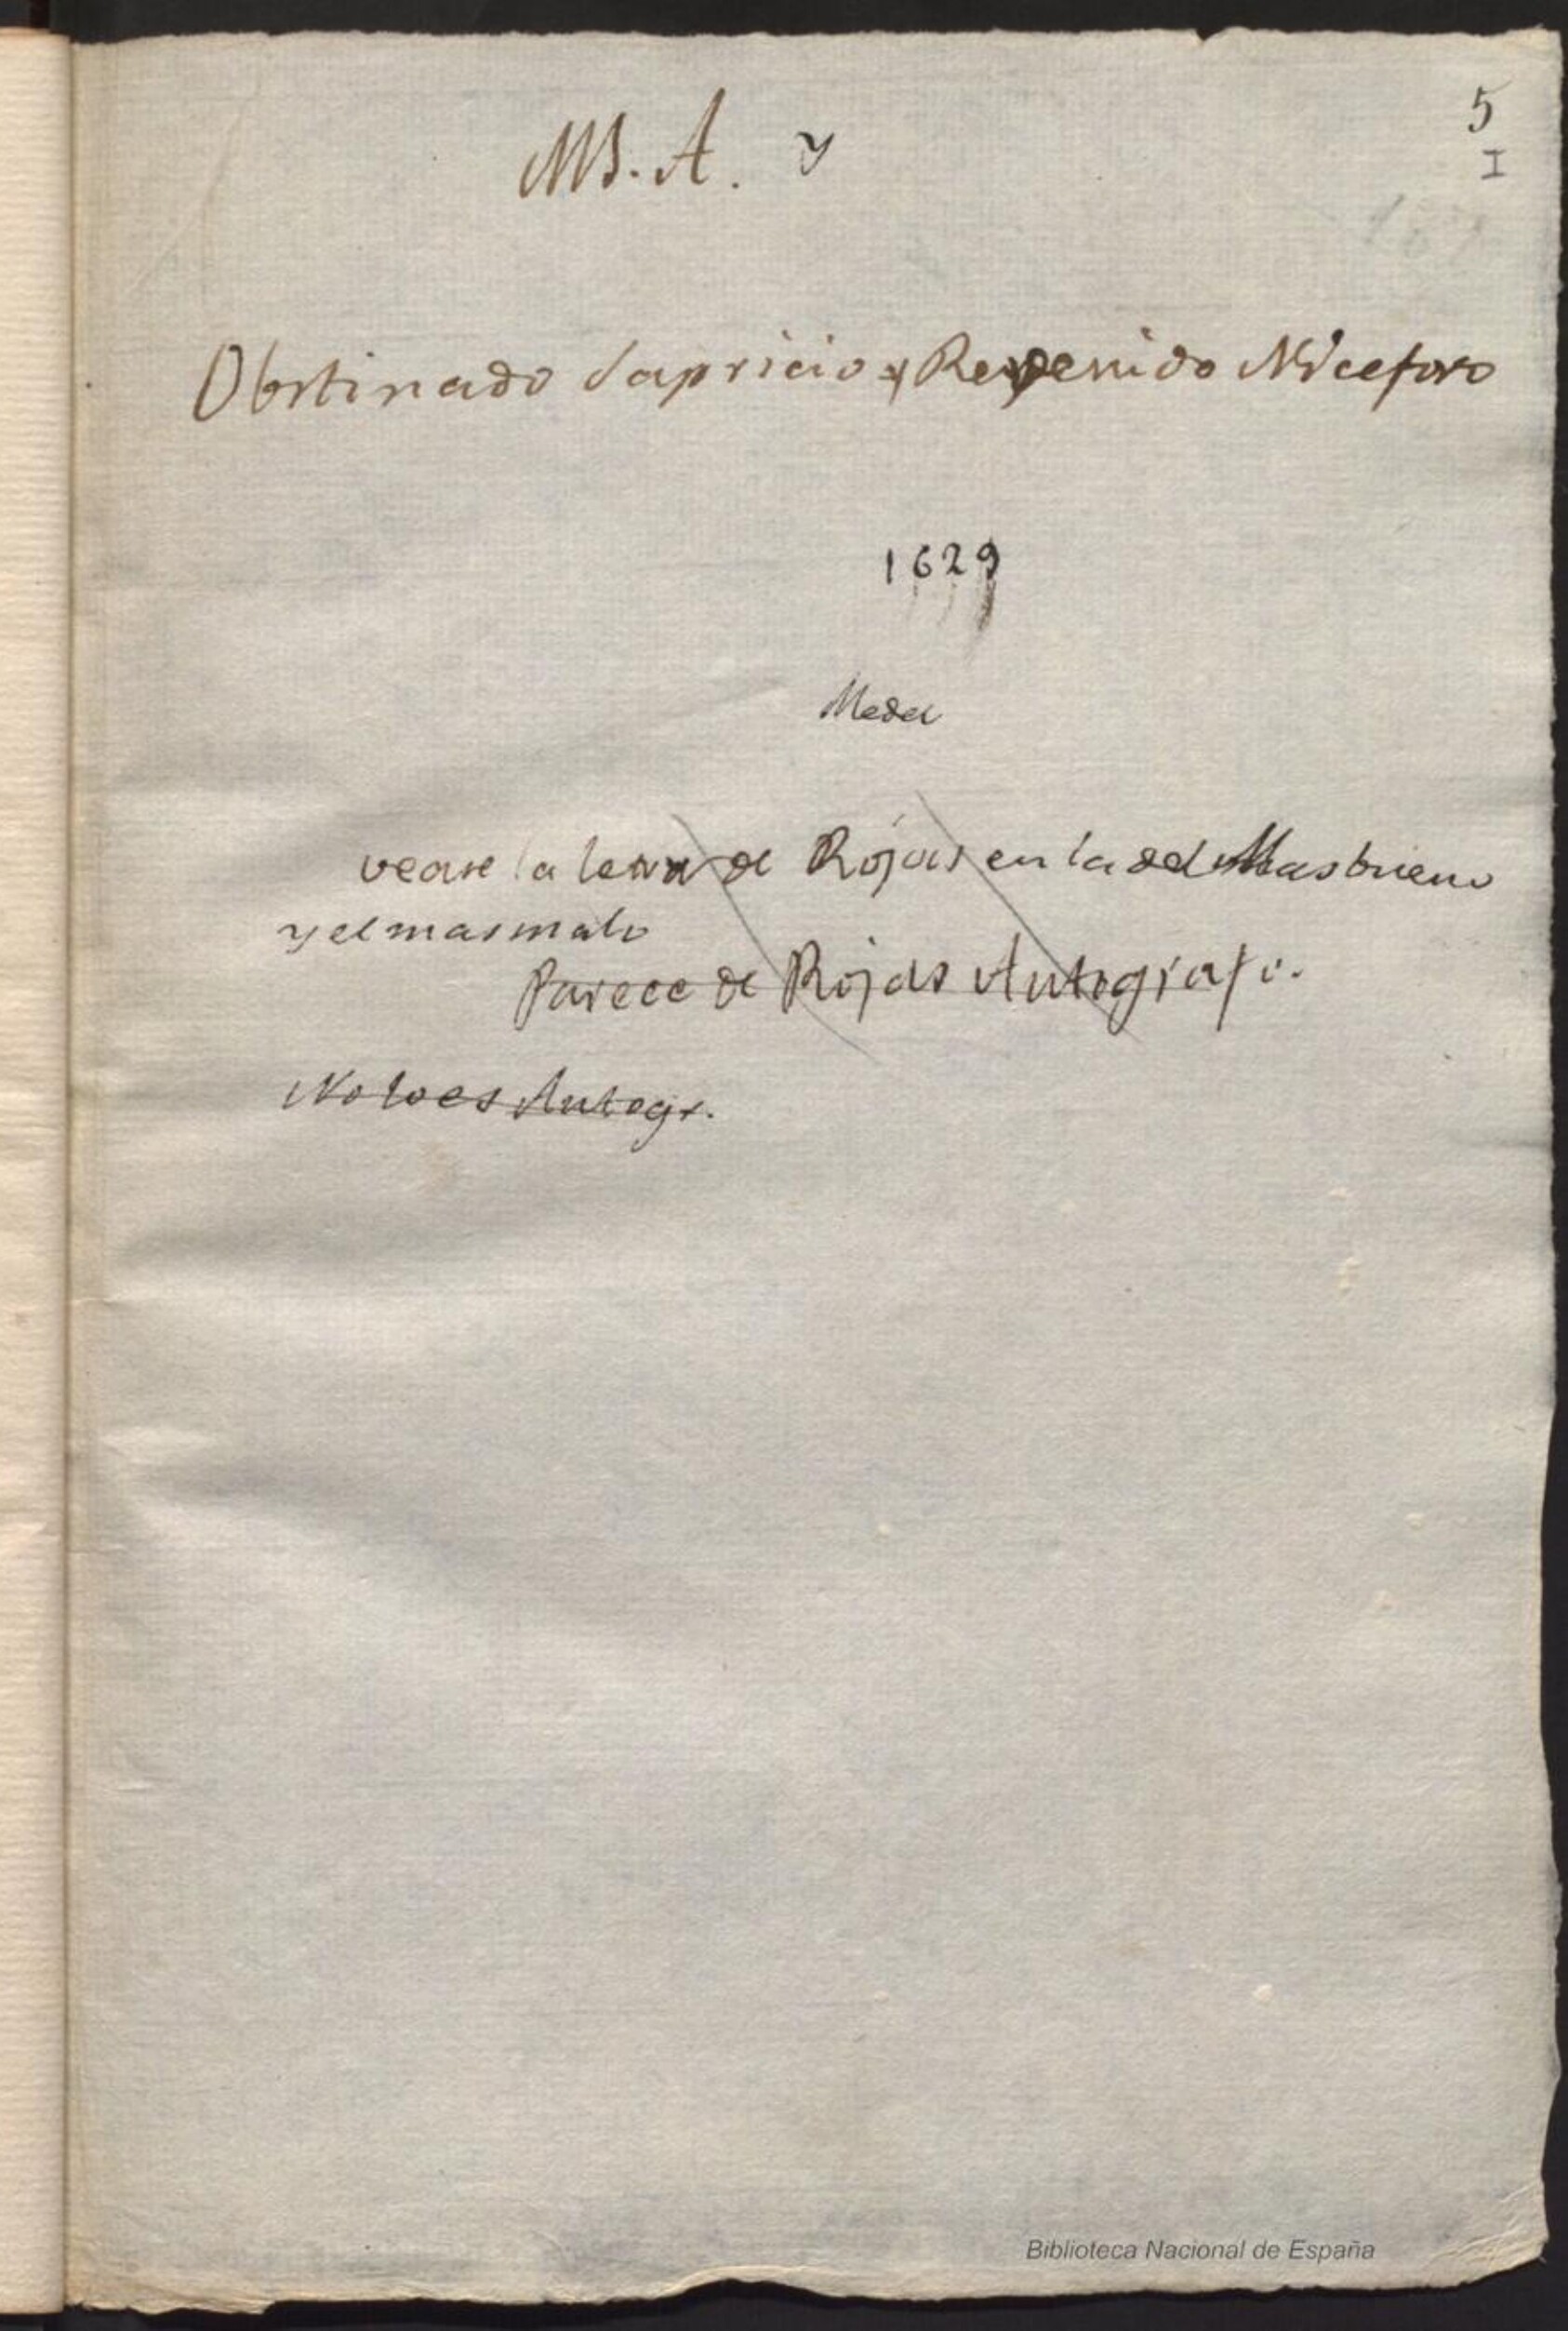 5
I
MS. A. y
Obstinado Sapricio y Repenido Niceforo
1629
Medel
vease la letra de Rojas en la del Mas bueno
y el mas malo
Parece de Rojas Autografo.
No lo es Autogr.
Biblioteca Nacional de España